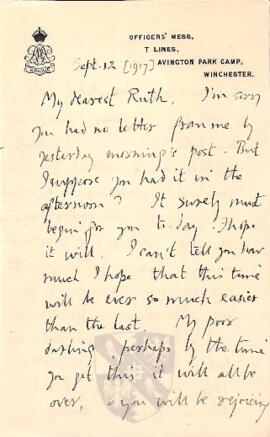 OFFICERS' MESS,
T LINES,
Sept. 12 [1917] AVINGTON PARK CAMP,
WINCHESTER.
My dearest Ruth, I'm sorry
you had no letter from me by
yesterday morning's post. But
I suppose you had it in the
afternoon? It surely must
begin for you to-day. I hope
it will. I can't tell you how
much I hope that this time
will be ever so much easier
than the last. My poor
darling, perhaps by the time
you get this it will all be
over, & you will be rejoicing